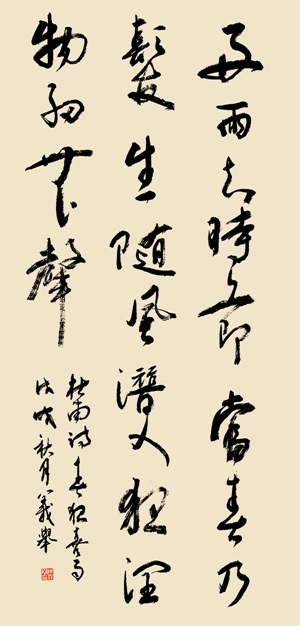 好雨知時節當春乃
髮生随風潛入夜潤
物細無聲
杜甫詩春夜喜雨
戊戌秋月義舉